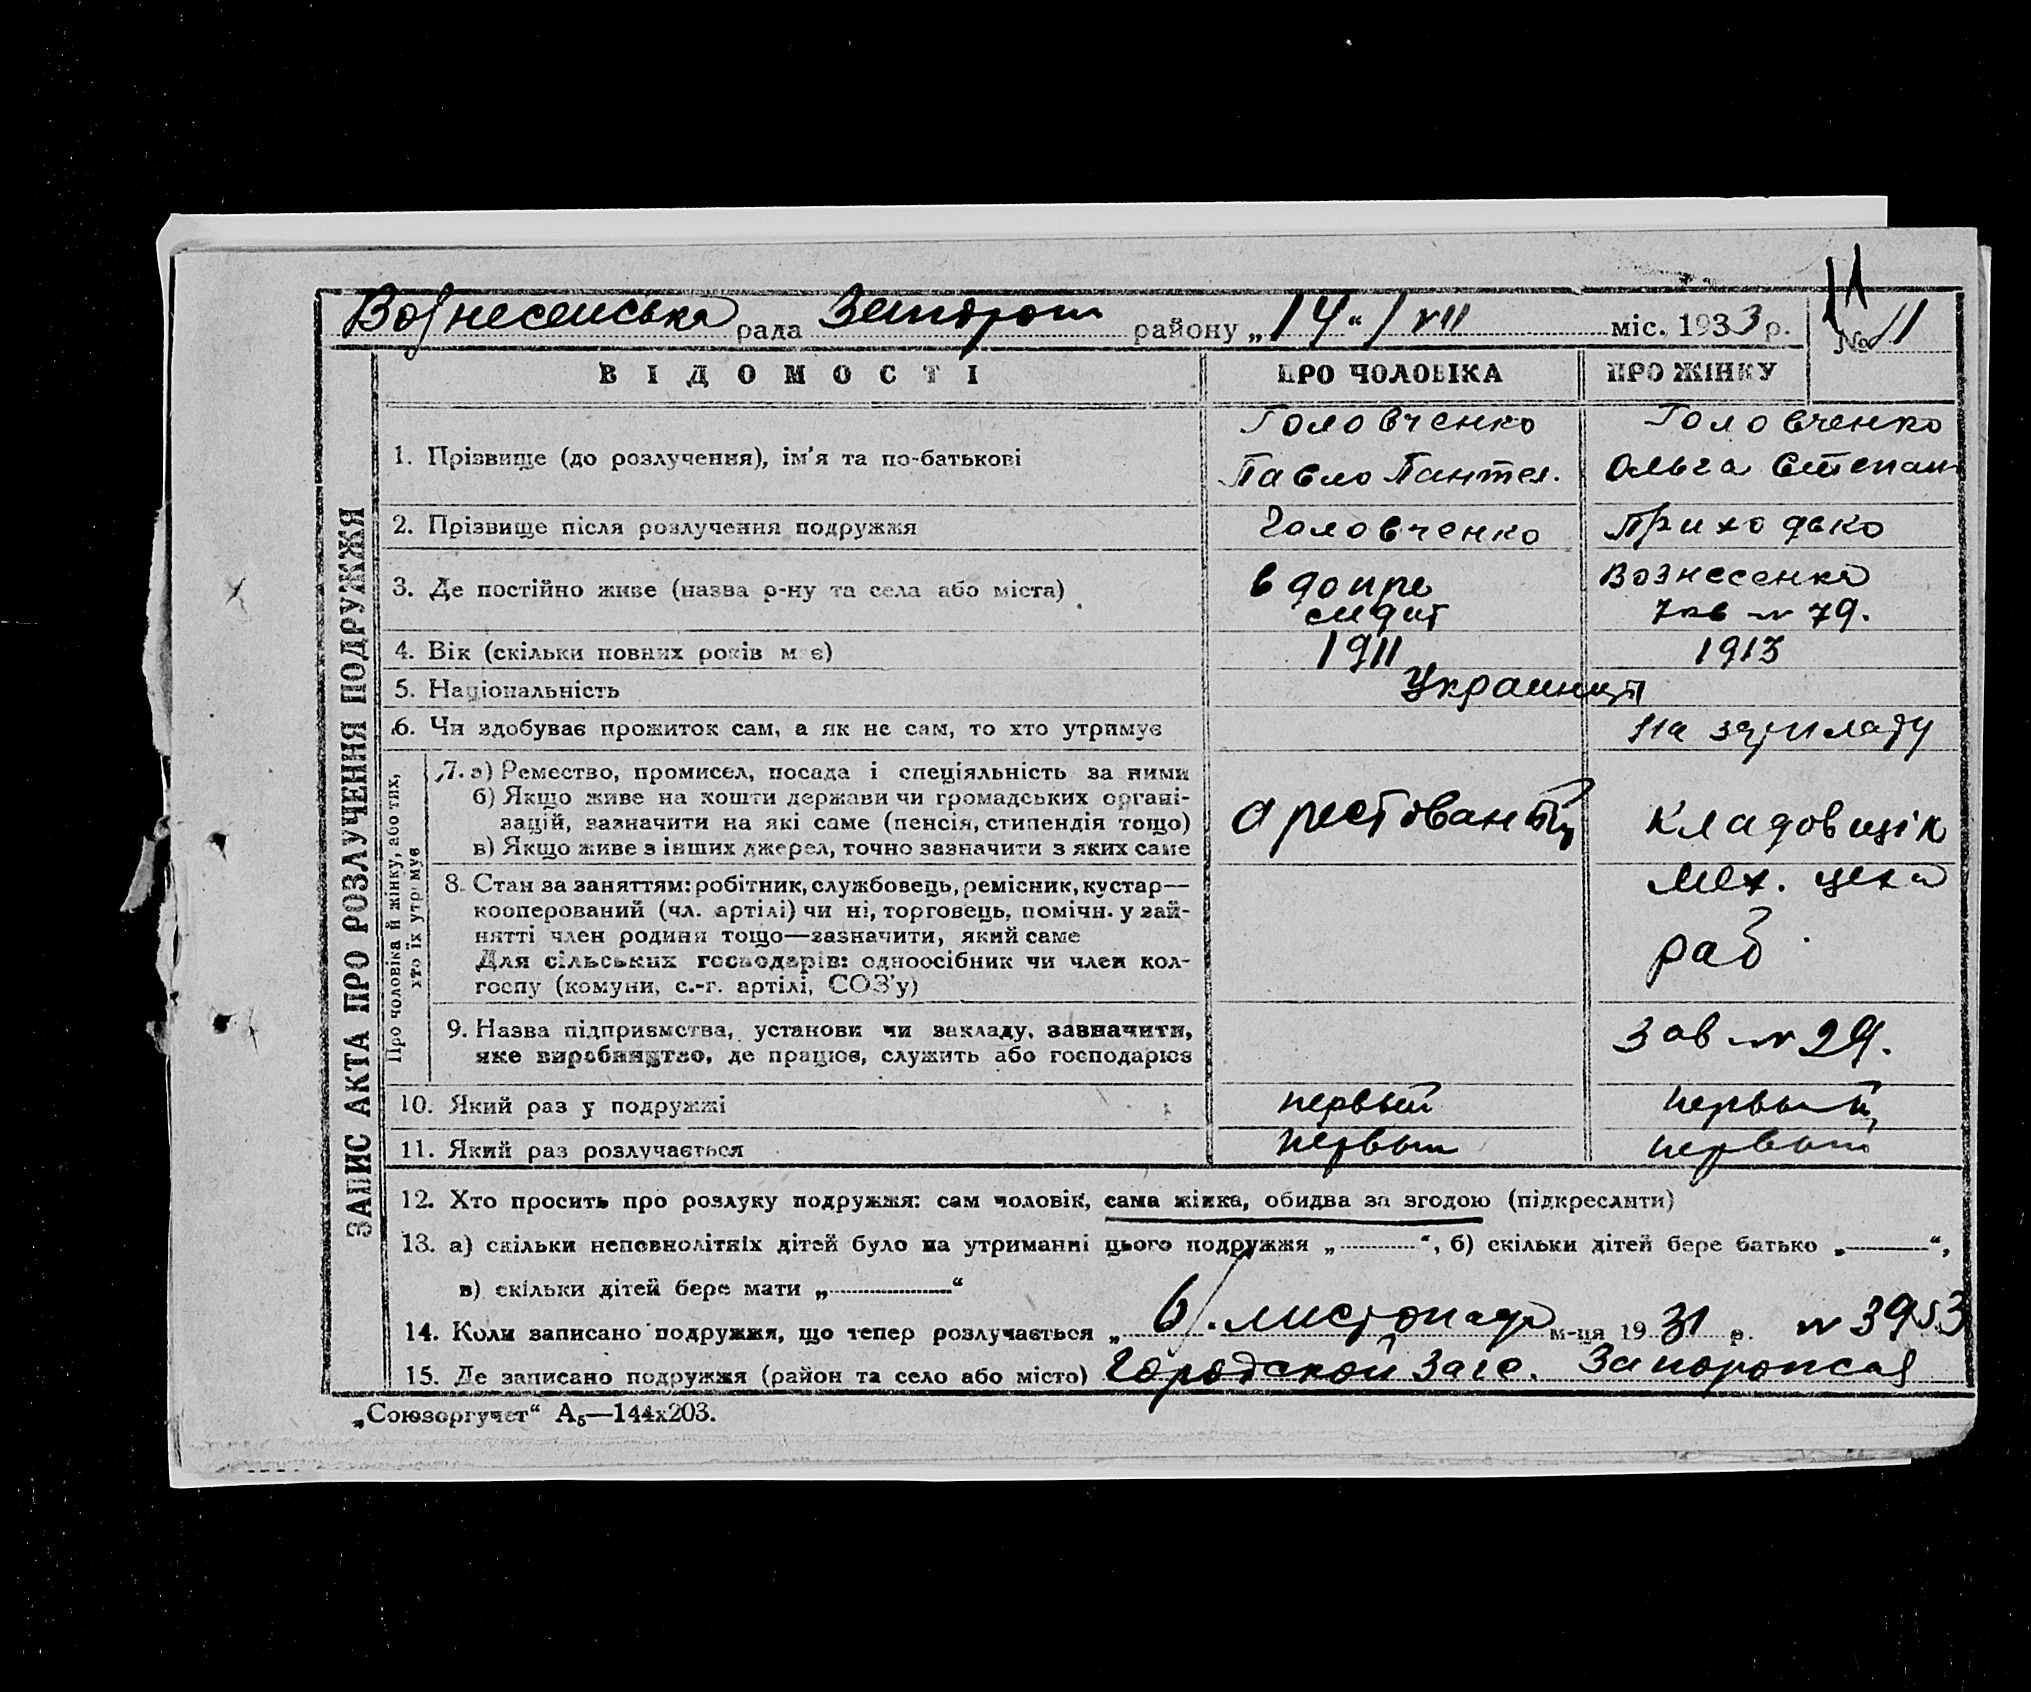 Вознесенська рада Запорож району „14“ / VII міс. 1933 р.
11
№ 11
ЗАПИС АКТА ПРО РОЗЛУЧЕННЯ ПОДРУЖЖЯ
ВІДОМОСТІ ПРО ЧОЛОВІКА ПРО ЖІНКУ
Головченко Головченко
1. Прізвище (до розлучення), ім'я та по-батькові Павло Пантел. Ольга Степан
2. Прізвище після розлучення подружжя Головченко Приходько
3. Де постійно живе (назва р-ну та села або міста) в допре Вознесенка
сидит 7 кв № 79.
4. Вік (скільки повних років має) 1911 1913
5. Національність Украинци
6. Чи здобуває прожиток сам, а як не сам, то хто утримує На зарплату
Про чоловіка й жінку, або тих,
хто їх утримує
7. а) Ремество, промисел, посада і спеціяльність за ними
б) Якщо живе на кошти держави чи громадських органі-
зацій, зазначити на які саме (пенсія, стипендія тощо) арестований кладовщік
в) Якщо живе з інших джерел, точно зазначити з яких саме
8. Стан за заняттям: робітник, службовець, ремісник, кустар— мех. цеха
кооперований (чл. артілі) чи ні, торговець, помічн. у зай-
нятті член родини тощо—зазначити, який саме раб
Для сільських господарів: одноосібник чи член кол-
госпу (комуни, с.-г. артілі, СОЗ'у)
9. Назва підприємства, установи чи закладу, зазначити, Зав № 29.
яке виробництво, де працює, служить або господарює
10. Який раз у подружжі первый первый
11. Який раз розлучається первый первый
12. Хто просить про розлуку подружжя: сам чоловік, сама жінка, обидва за згодою (підкреслити)
13. а) скільки неповнолітніх дітей було на утриманні цього подружжя „ “, б) скільки дітей бере батько „ “,
в) скільки дітей бере мати „ “
14. Коли записано подружжя, що тепер розлучається „ 6/. листопада м-ця 19 31 р. № 3953
15. Де записано подружжя (район та село або місто) Городской Загс.
„Союзоргучет“ А5—144х203.